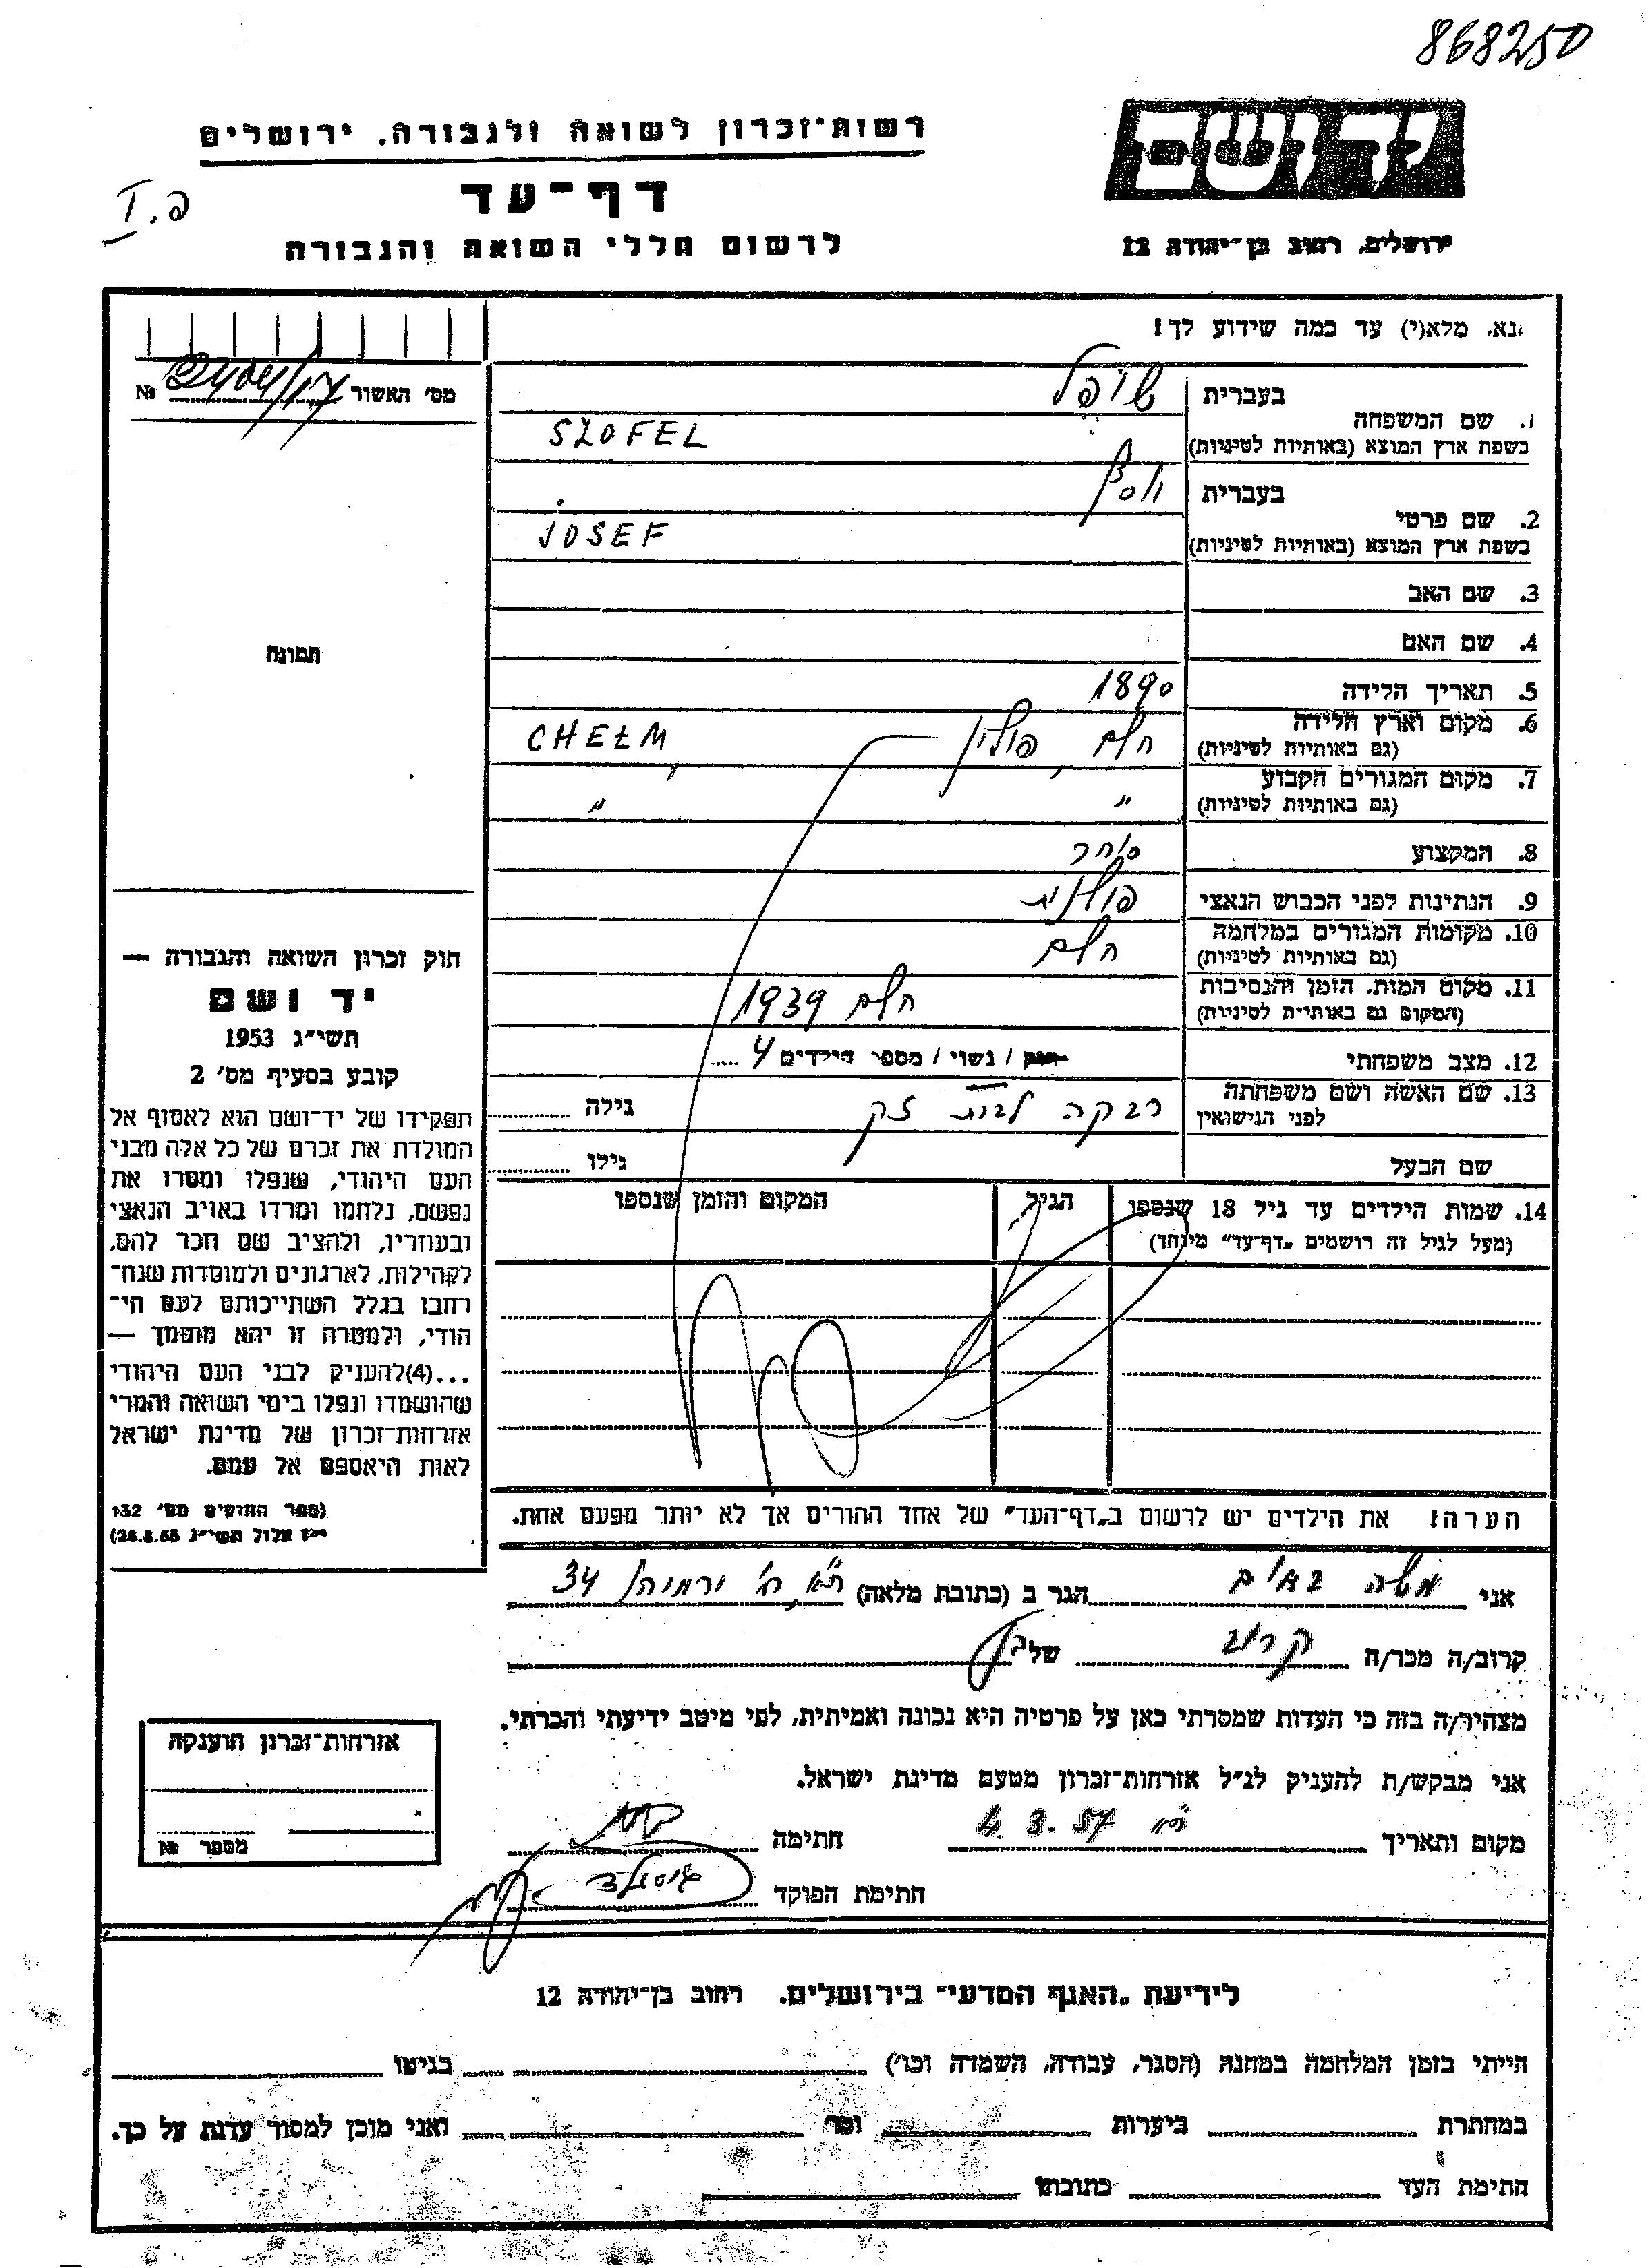 868250
רשות־זכרון לשואה ולגבורה, ירושלים
יד ושם
דף־עד
פ. I
לרשום חללי השואה והגבורה
ירושלים, רחוב בן־יהודה 12
נא, מלא(י) עד כמה שידוע לך!
מס׳ האשור №
1. שם המשפחה
בעברית שופל
בשפת ארץ המוצא (באותיות לטיניות) SZOFEL
2. שם פרטי
בעברית יוסף
בשפת ארץ המוצא (באותיות לטיניות) JOSEF
3. שם האב
4. שם האם
תמונה
5. תאריך הלידה 1890
6. מקום וארץ הלידה
(גם באותיות לטיניות) חלם, פולין CHEŁM,
7. מקום המגורים הקבוע
(גם באותיות לטיניות) " "
8. המקצוע סוחר
9. הנתינות לפני הכבוש הנאצי פולנית
10. מקומות המגורים במלחמה
(גם באותיות לטיניות) חלם
11. מקום המות, הזמן והנסיבות
(המקום גם באותיות לטיניות) חלם 1939
12. מצב משפחתי רווק / נשוי / מספר הילדים 4
13. שם האשה ושם משפחתה
לפני הנישואין רבקה לבית זק גילה
שם הבעל גילו
14. שמות הילדים עד גיל 18 שנספו
(מעל לגיל זה רושמים „דף־עד" מיוחד)
הגיל
המקום והזמן שנספו
חוק זכרון השואה והגבורה —
יד ושם
תשי״ג 1953
קובע בסעיף מס׳ 2
תפקידו של יד־ושם הוא לאסוף אל
המולדת את זכרם של כל אלה מבני
העם היהודי, שנפלו ומסרו את
נפשם, נלחמו ומרדו באויב הנאצי
ובעוזריו, ולהציב שם וזכר להם,
לקהילות, לארגונים ולמוסדות שנח־
רבו בגלל השתייכותם לעם הי־
הודי, ולמטרה זו יהא מוסמך —
...(4)להעניק לבני העם היהודי
שהושמדו ונפלו בימי השואה והמרי
אזרחות־זכרון של מדינת ישראל
לאות היאספם אל עמם.
(ספר החוקים מס׳ 132
י״ז אלול תשי״ג 28.8.53)
הערה! את הילדים יש לרשום ב„דף־העד" של אחד ההורים אך לא יותר מפעם אחת.
אני משה באום הגר ב (כתובת מלאה) ת״א, 34
קרוב/ה מכר/ה קרוב של
מצהיר/ה בזה כי העדות שמסרתי כאן על פרטיה היא נכונה ואמיתית, לפי מיטב ידיעתי והכרתי.
אני מבקש/ת להעניק לנ״ל אזרחות־זכרון מטעם מדינת ישראל.
מקום ותאריך 4.3.57 חתימה
חתימת הפוקד
אזרחות־זכרון הוענקה
מספר №
לידיעת „האגף המדעי" בירושלים. רחוב בן־יהודה 12
הייתי בזמן המלחמה במחנה (הסגר, עבודה, השמדה וכו׳) בגיטו
במחתרת ביערות וכו׳ ואני מוכן למסור עדות על כך.
חתימת העד כתובתו